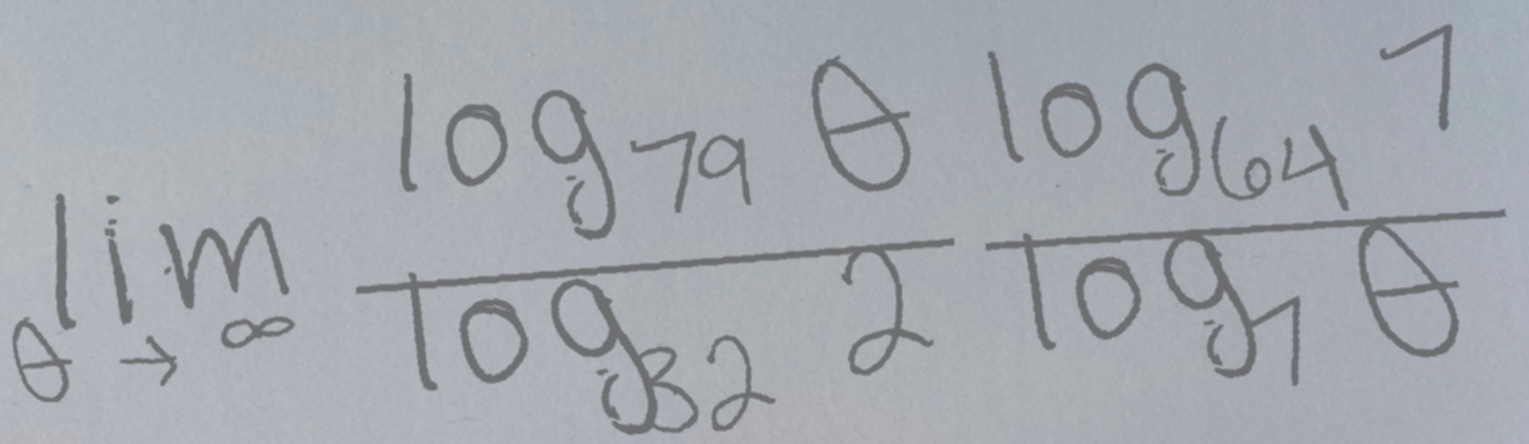 \lim_{\theta \to \infty} \frac{\log_{79} \theta}{\log_{32} 2} \frac{\log_{64} 7}{\log_{7} \theta}